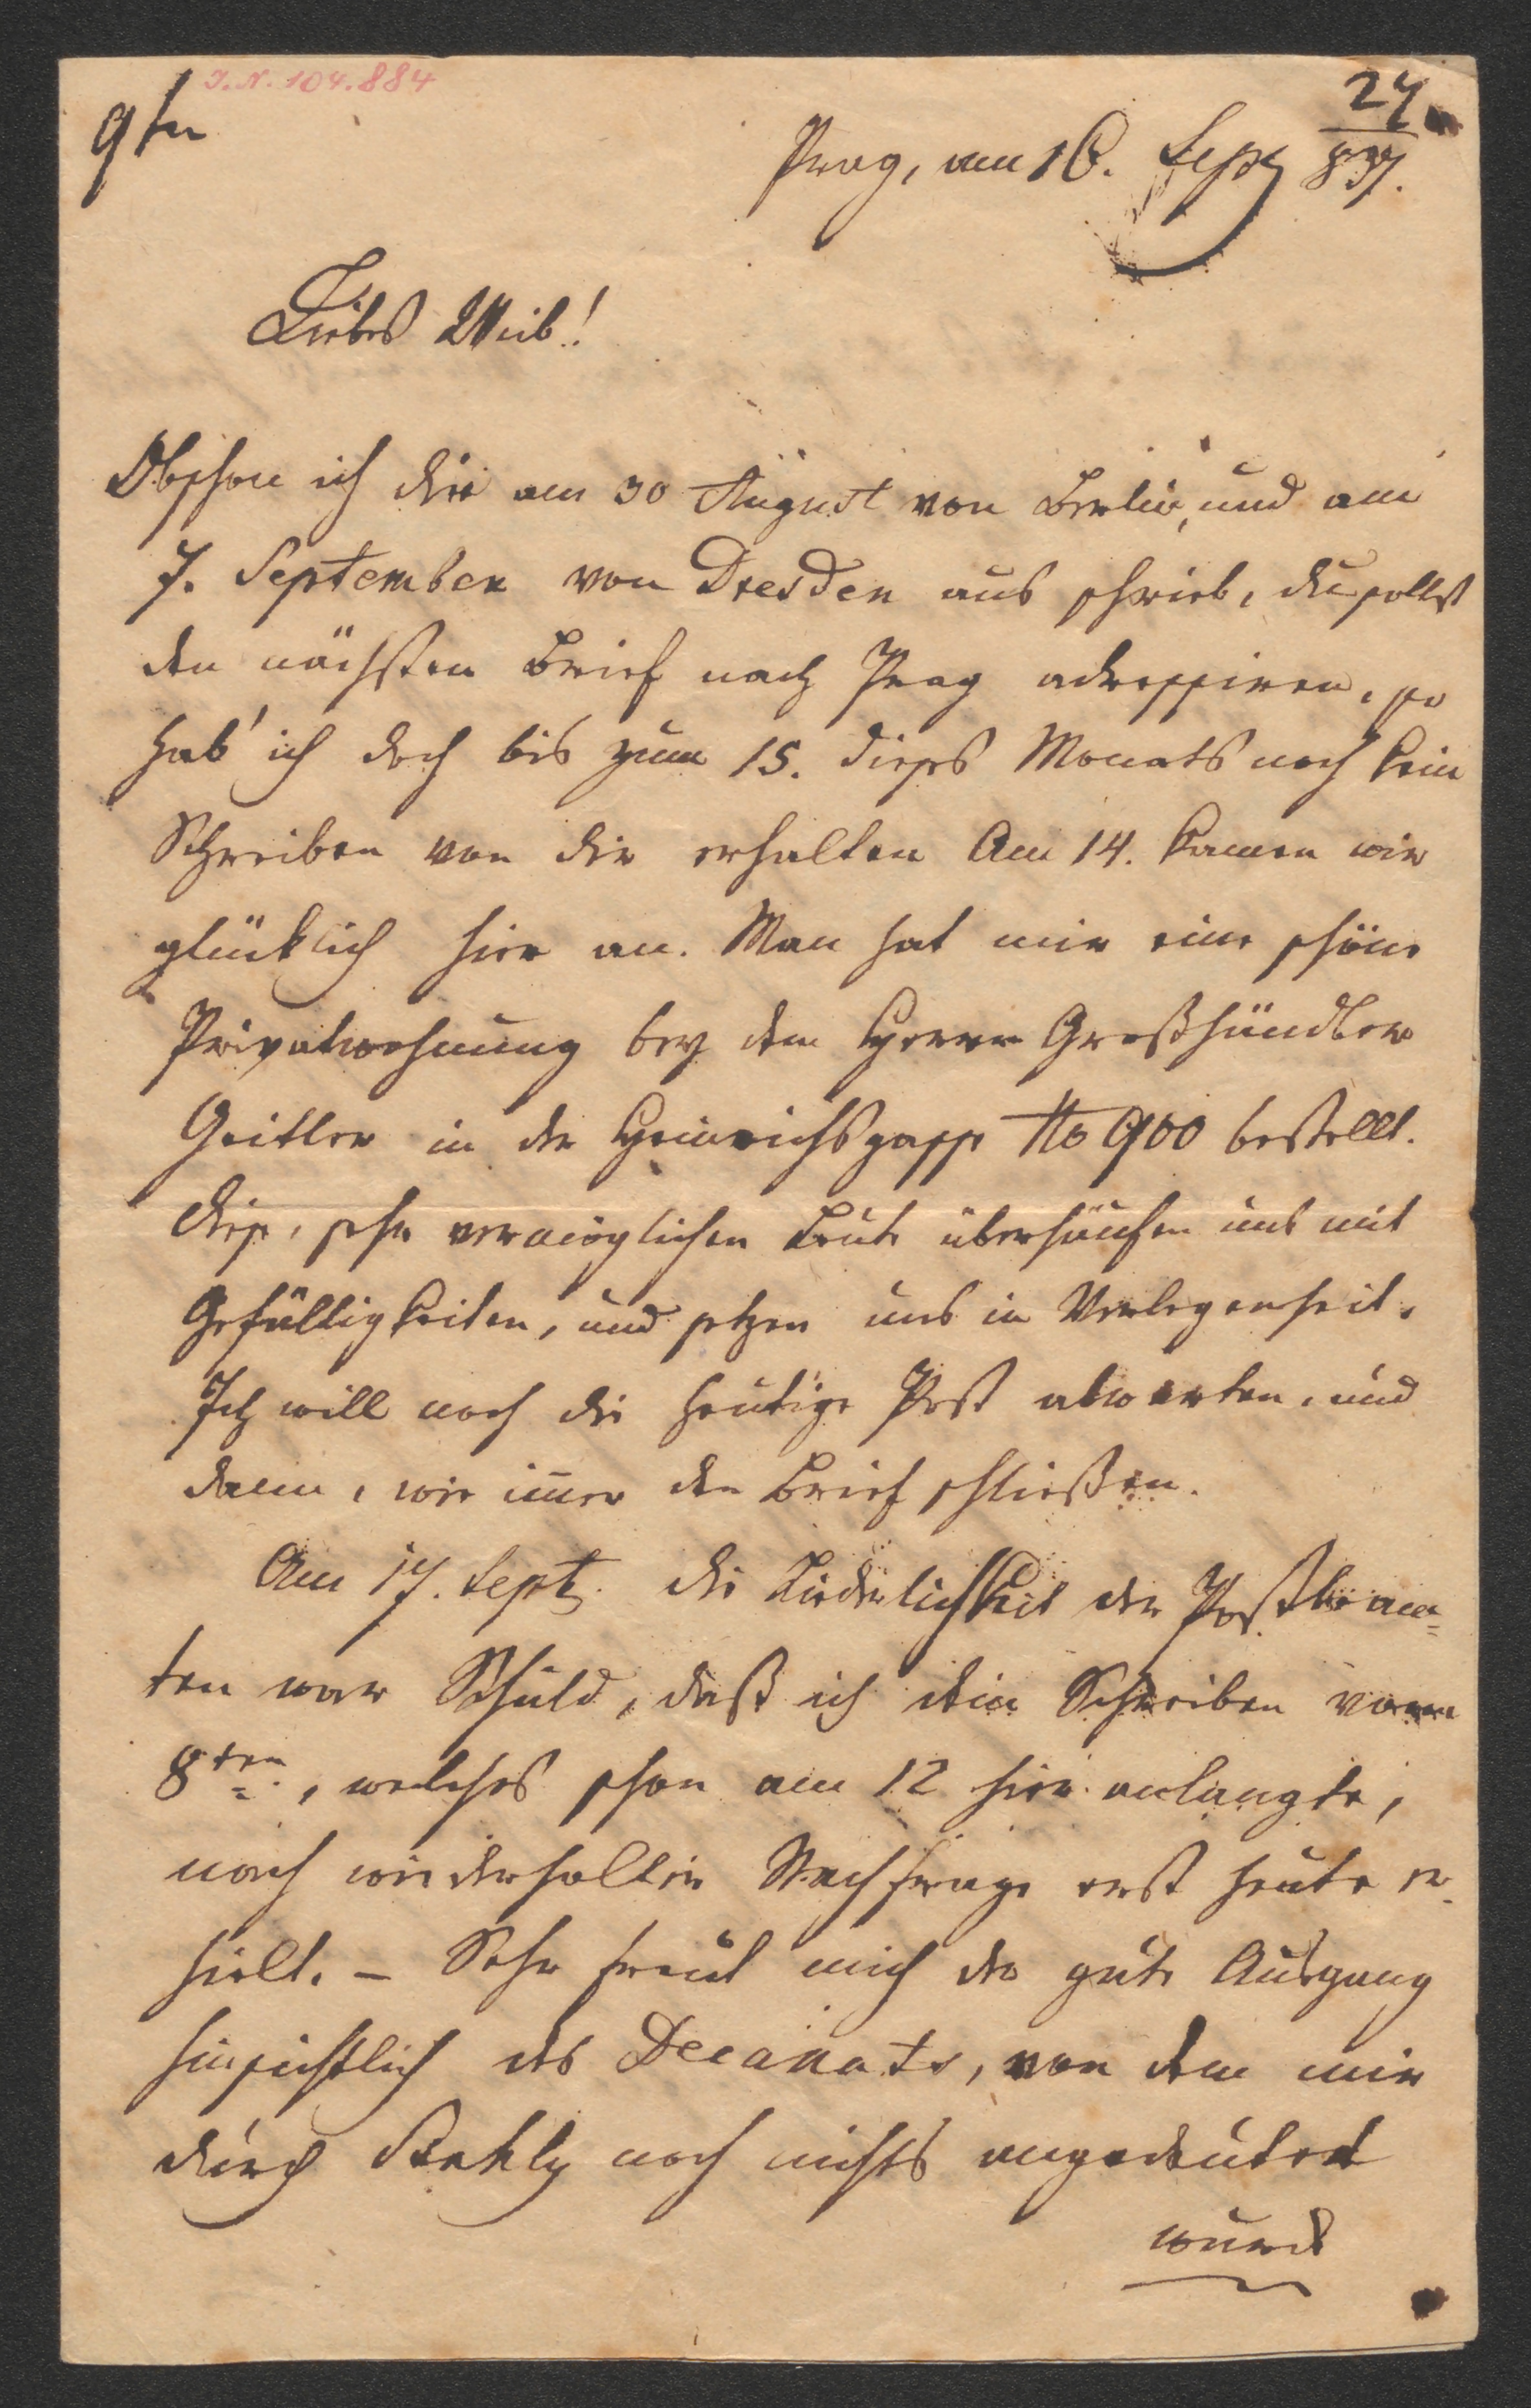 I.N. 104.884
9tn
24
Prag, am 16. Sept 837.
Liebes Weib!
Obschon ich dir am 30 August von Berlin, und am
7. September von Dresden aus schrieb, du sollst
den nächsten Brief nach Prag adressiren, so
hab' ich doch bis zum 15. dieses Monats noch kein
Schreiben von dir erhalten Am 14. kamen wir
glücklich hier an. Man hat mir eine schöne
Privatwohnung bey dem Herrn Großhändler
Geitler in der Heinrichsgasse No 900 bestellt.
Diese, sehr vermöglichen Leute überhäufen uns mit
Gefälligkeiten, und setzen uns in Verlegenheit.
Ich will noch die heutige Post abwarten, und
dann, wie im̅er den Brief schließen.
Am 17. Sept. die Liederlichkeit der Postbeam=
ten war Schuld, daß ich dein Schreiben vom
8ten, welches schon am 12 hier anlangte,
nach wiederholter Nachfrage erst heute er
hielt. – Sehr freut mich der gute Ausgang
hinsichtlich des Decanats, von dem mir
durch noch nichts angedeutet
wurde